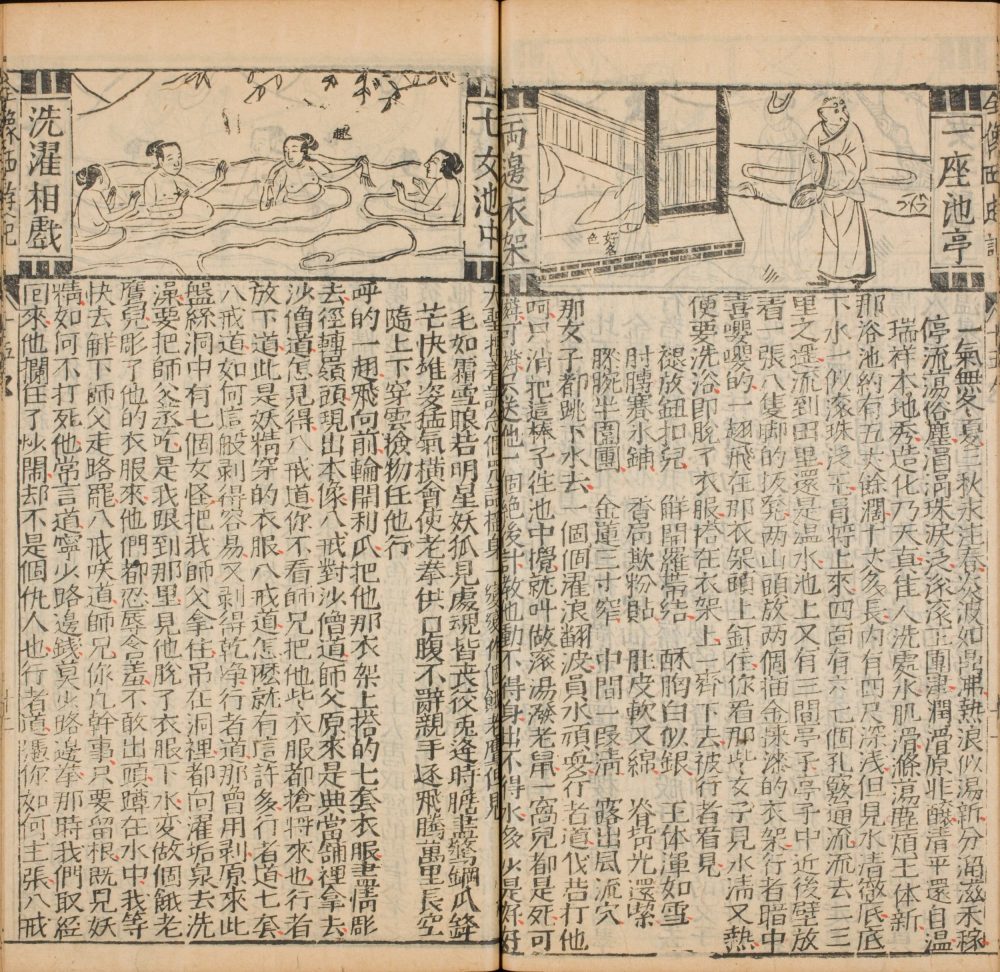 一座池亭
兩邊衣架
一氣無冬夏三秋永注春炎波如鼎沸熱浪似湯新分溜滋禾稼
停流湯俗塵涓涓珠淚泛滾滾玉團津潤滑原非釀清平還自溫
瑞祥本地秀造化乃天真佳人洗處水肌滑滌蕩塵煩玉体新
那浴池約有五丈餘闊十丈多長內有四尺深淺但見水清徹底底
下水一似滾珠泛玉骨上來四面有六七個孔竅通流流去二三
里之遥流到田里還是温水池上又有三間亭子亭子中近後壁放
着一張八隻脚的板凳两山頭放两個描金採漆的衣架行者暗中
喜嚶嚶的一翅飛在那衣架頭上釘住你看那些女子見水清又熱
便要洗浴即脫了衣服搭在衣架上一齊下去被行者看見
褪放鈕扣兒 鮮開羅帶結 酥胸白似銀 玉体渾如雪
肘膊賽氷鋪 香肩欺粉貼 肚皮軟又綿 脊背光還潔
膝腕半圍團 金蓮三寸窄 中間一段清 露出風流穴
那女子都跳下水去一個個濯浪翻波員水頑耍行者道我若打他
呵只消把這棒子徃池中攪就叫做滾湯潑老鼠一窩兒都是死可
憐可憐送他一個絕後計教他動不得身出不得水多少是好好
七女池中
洗濯相戲
大聖捏着訣念個咒語搖身一變變作個餓老鷹但見
毛如霜雪眼若明星妖狐見處魂皆丧狡兎逢時瞻盡驚鋼爪鋒
芒快雄姿猛氣橫會使老拳供口腹不辭親手逐飛騰萬里長空
隨上下穿雲撿物任他行
呼的一翅飛向前輪開利爪把他那衣架上搭的七套衣服盡情彫
去徑轉嶺頭現出本像八戒對沙僧道師父原來是典當舖裡拿去
沙僧道怎見得八戒道你不看師兄把他些衣服都搶將來也行者
放下道此是妖精穿的衣服八戒道怎麼就有這許多行者道七套
八戒道如何這般剥得容易又剥得乾净行者道那曾用剥原來此
盤絲洞中有七個女怪把我師父拿住吊在洞裡都向濯垢泉去洗
澡要把師父烝吃是我跟到那里見他脫了衣服下水变做個餓老
鷹兒彫了他的衣服來他們都忍辱含羞不敢出頭蹲在水中我等
快去解下師父走路罷八戒咲道師兄你凢幹事只要留根既見妖
精如何不打死他常言道寧少路邊錢莫少路邊拳那時我們取經
回來他攔住了炒鬧却不是個仇人也行者道憑你如何主張八戒